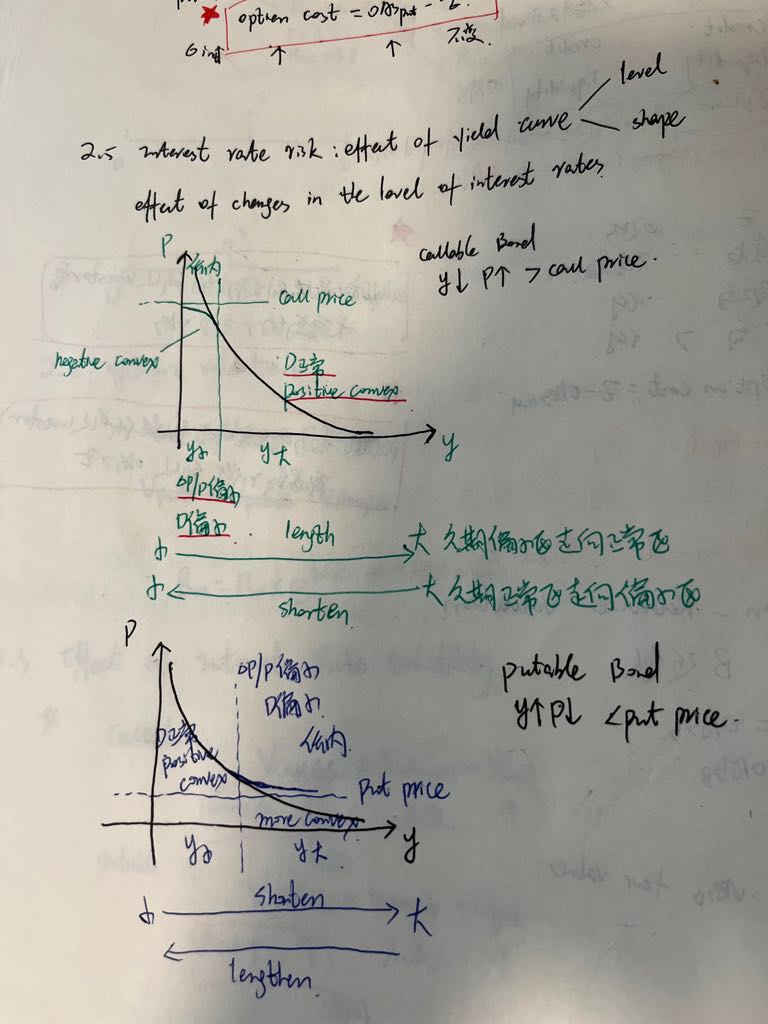 ★ option cost = OAS put - Z.
σ int↑ ↑ ↑ 不变.
2.5 interest rate risk : effect of yield curve level
shape
effect of changes in the level of interest rates
P
价内
call price
callable Bond
y↓ P↑ > call price.
negative convex
D正常
positive convex
y
y小 y大
ΔP/P偏小
D偏小
小 length 大 久期偏小区走向正常区
小 shorten 大 久期正常区走向偏小区
P
ΔP/P偏小
D偏小
价内.
D正常
positive convex
putable Bond
y↑ P↓ < put price.
put price
more convex
y
y小 y大
小 shorten 大
lengthen